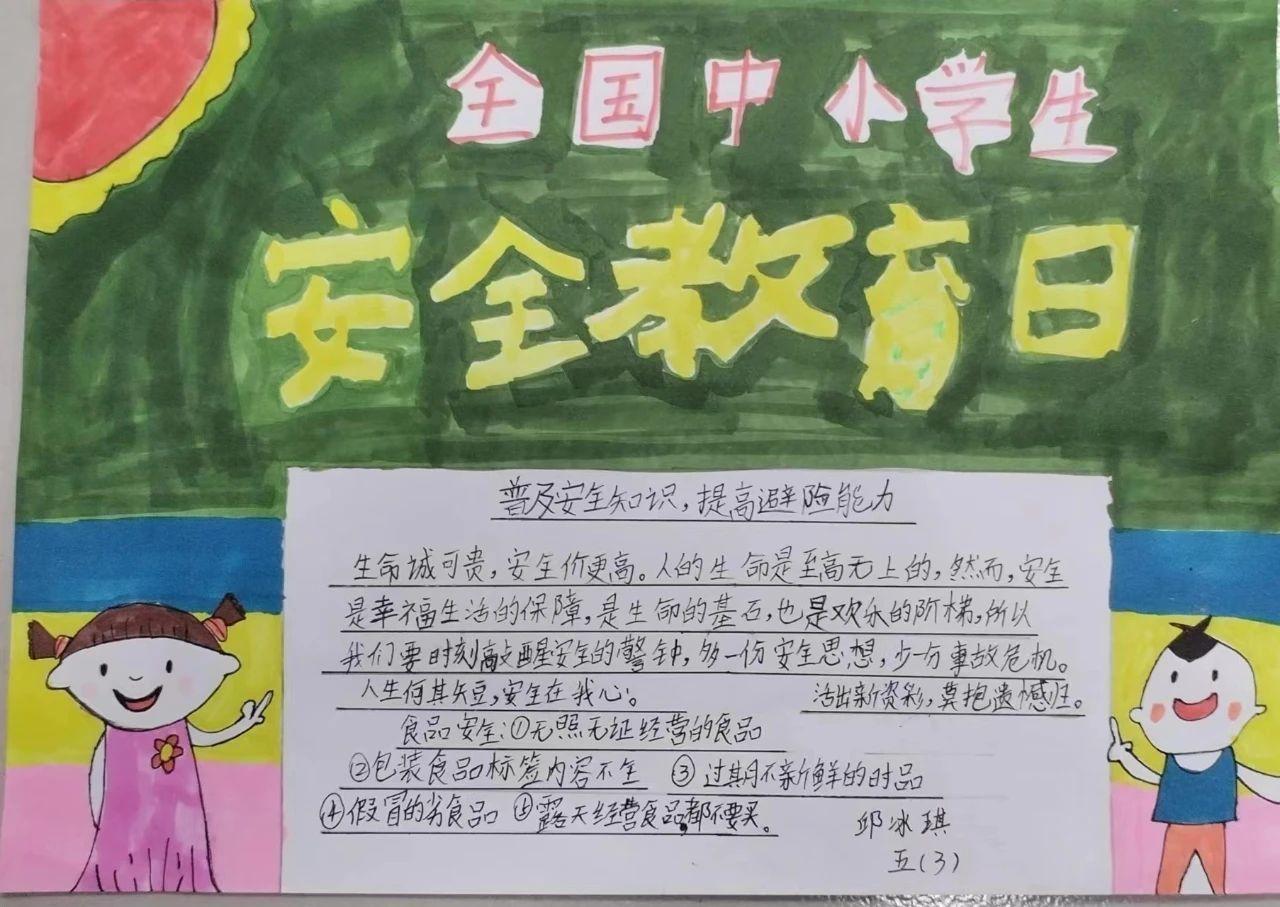 全国中小学生
安全教育日
普及安全知识，提高避险能力
生命城可贵，安全价更高。人的生命是至高无上的，然而，安全
是幸福生活的保障，是生命的基石，也是欢乐的阶梯，所以
我们要时刻敲醒安全的警钟，多一份安全思想，少一分事故危机。
人生何其矢豆，安全在我心；活出新资彩，莫抱遗憾归。
食品安全：①无照无证经营的食品
②包装食品标签内容不全 ③过期不新鲜的时品
④假冒的劣食品 ⑤露天经营食品都不要买。
邱冰琪
五(3)